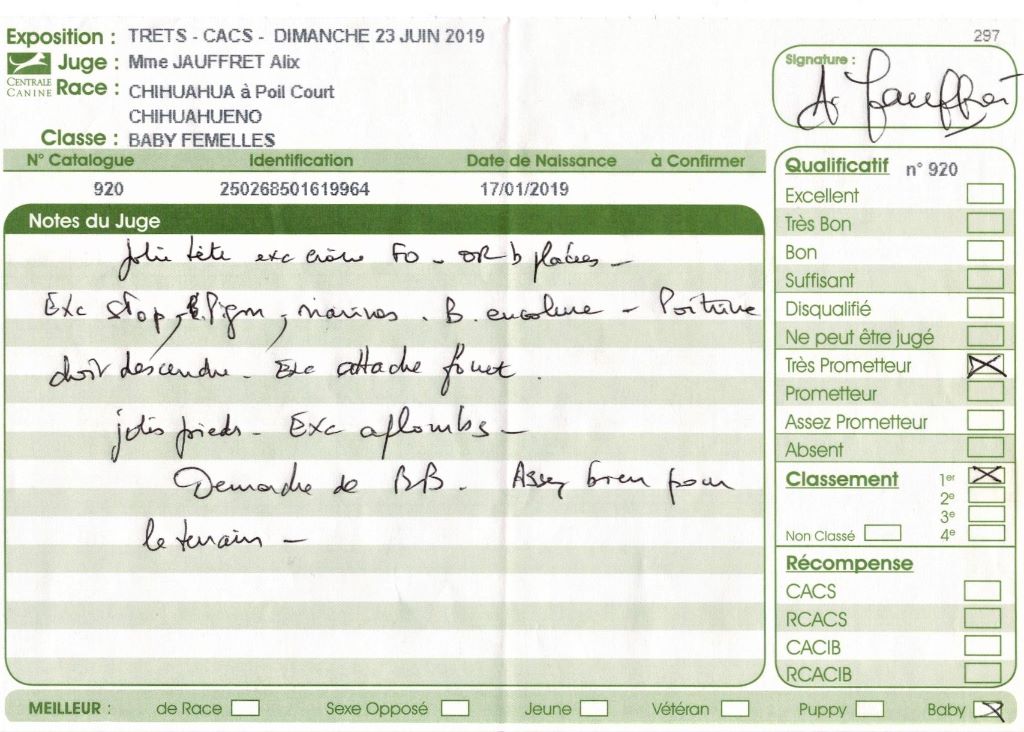 Exposition : TRETS - CACS - DIMANCHE 23 JUIN 2019
297
CENTRALE CANINE
Juge : Mme JAUFFRET Alix
Race : CHIHUAHUA à Poil Court
CHIHUAHUENO
Classe : BABY FEMELLES
Signature :
A. Jauffret
N° Catalogue Identification Date de Naissance à Confirmer
920 250268501619964 17/01/2019
Notes du Juge
jolie tête exc crâne FO - OR b placées -
Exc stop, pigm, narines. B. encolure - Poitrine
doit descendre. Exc attache fouet.
jolis pieds - Exc aplombs -
Demarche de BB. Assez bien pour
le terrain -
Qualificatif n° 920
Excellent
Très Bon
Bon
Suffisant
Disqualifié
Ne peut être jugé
Très Prometteur
Prometteur
Assez Prometteur
Absent
Classement 1er
2e
3e
Non Classé 4e
Récompense
CACS
RCACS
CACIB
RCACIB
MEILLEUR : de Race Sexe Opposé Jeune Vétéran Puppy Baby